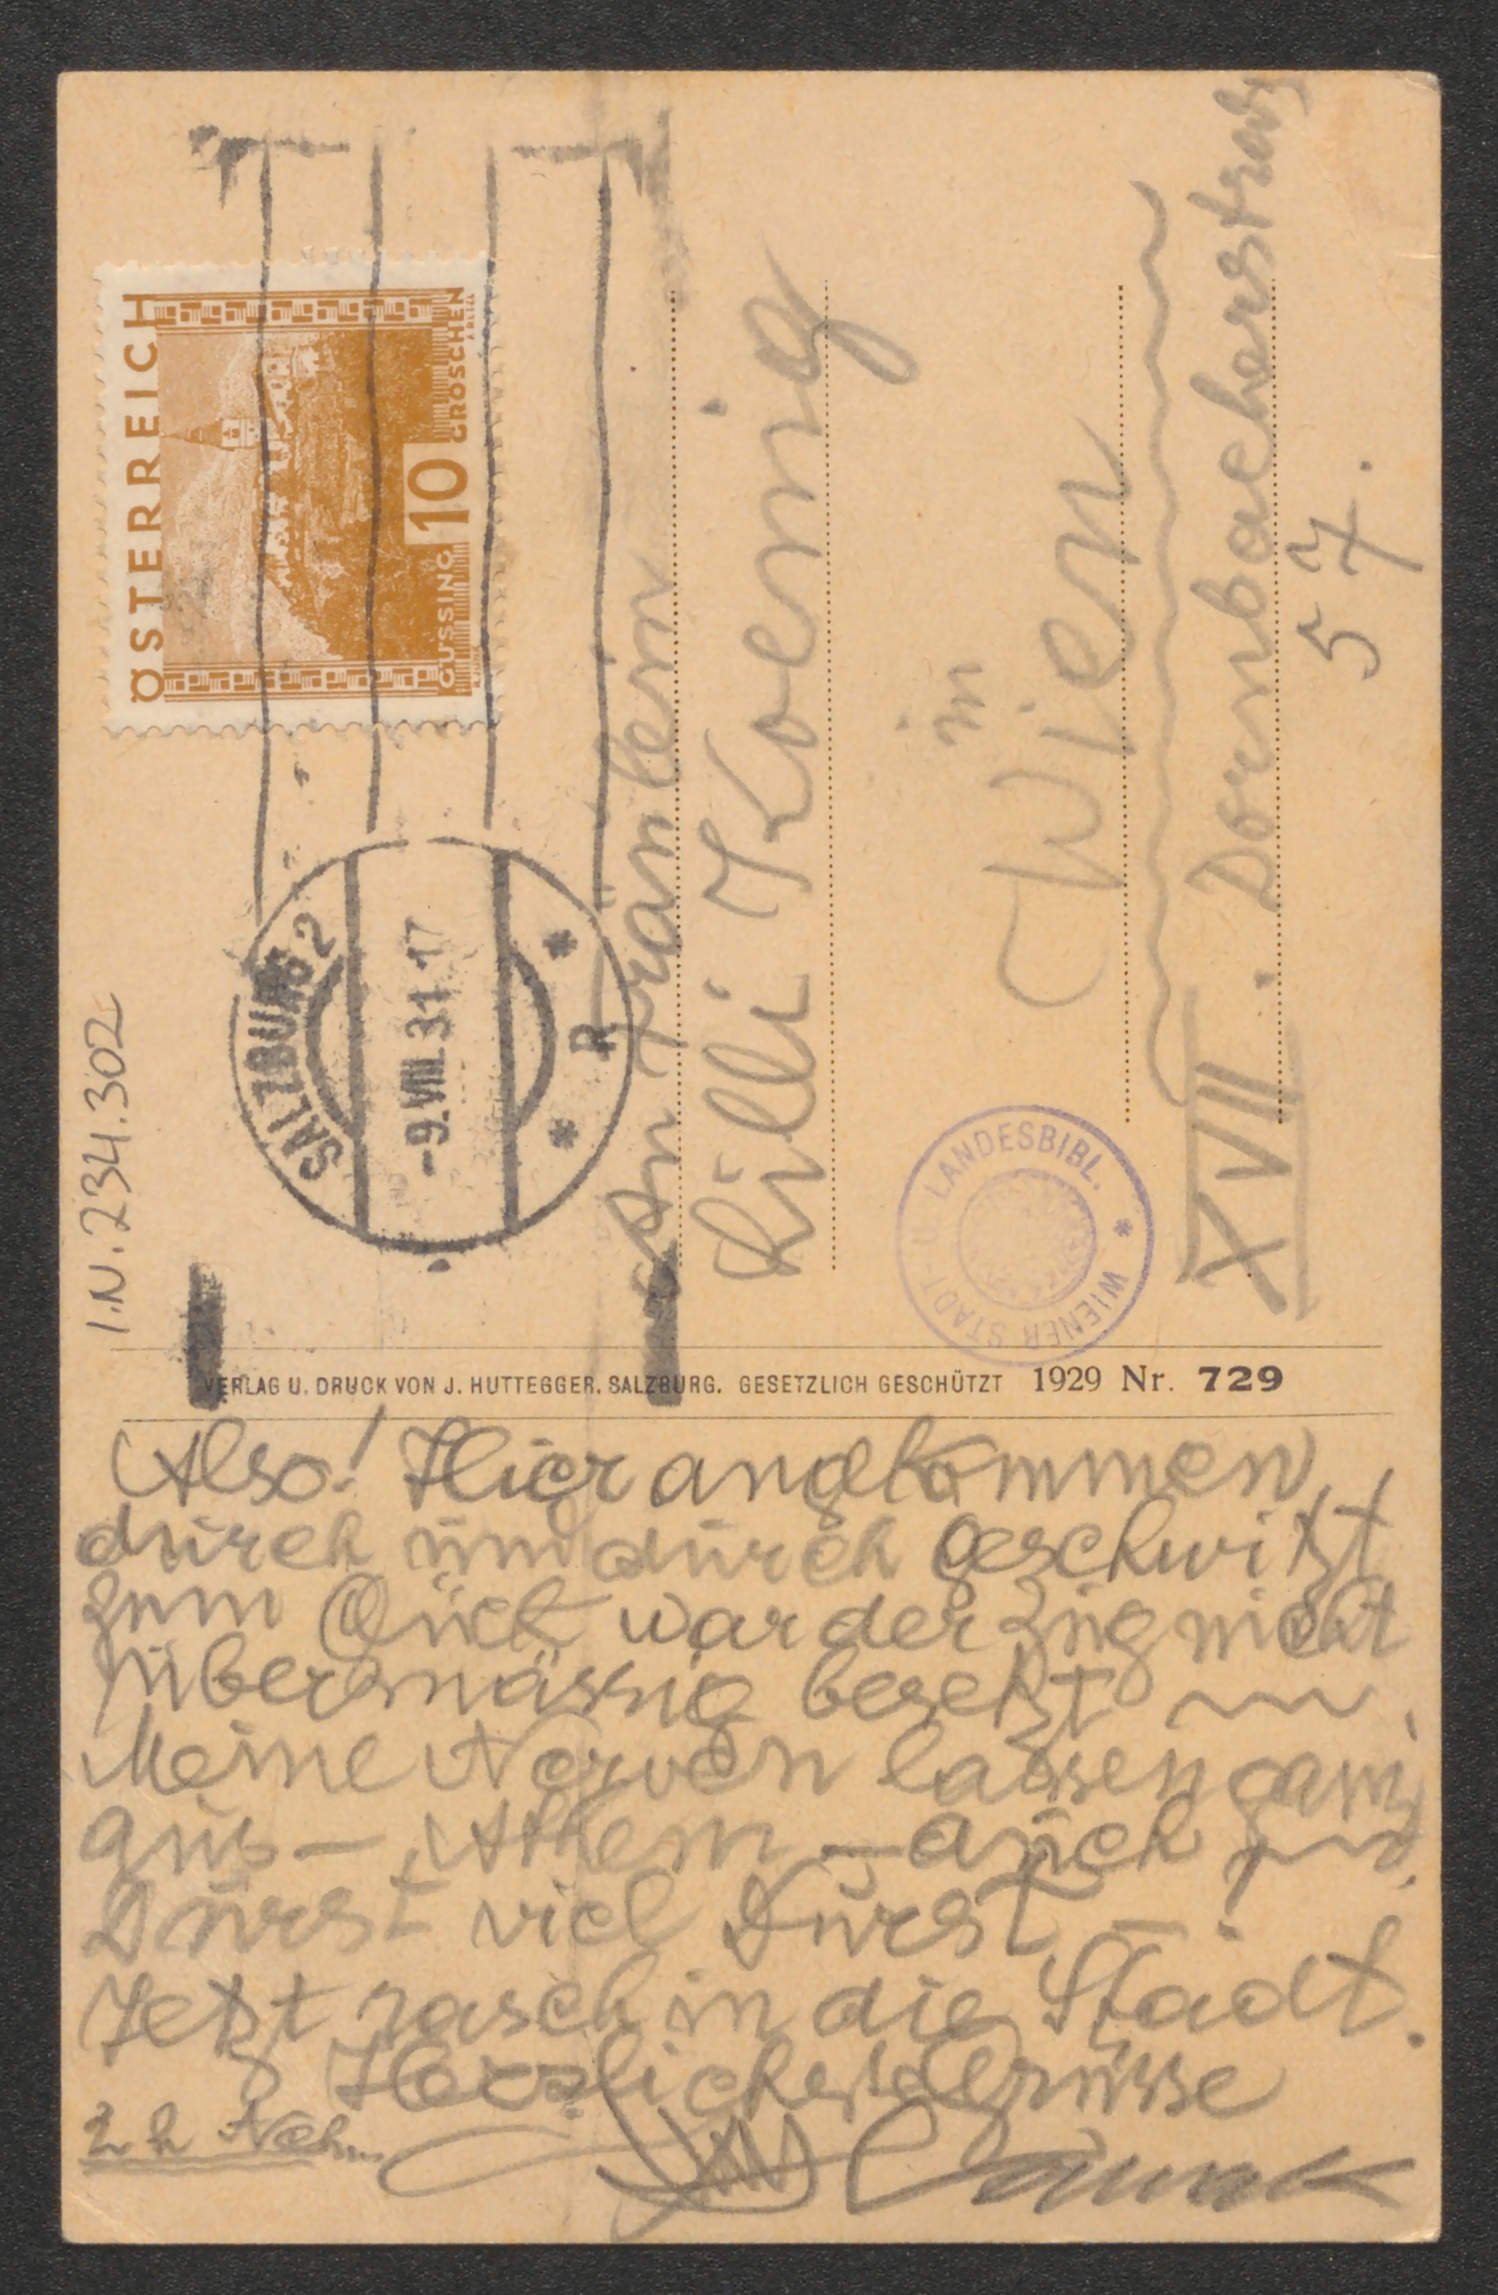 I.N. 234.302
ÖSTERREICH
GÜSSING 10 GROSCHEN
SALZBURG 2
-9.VIII.31.17
* R *
An Fräulein
Lilli Koenig
in
Wien
XVII. Dornbacherstrasse
57.
WIENER STADT- U. LANDESBIBL. *
VERLAG U. DRUCK VON J. HUTTEGGER, SALZBURG. GESETZLICH GESCHÜTZT 1929 Nr. 729
Also! Hier angekommen
durch und durch geschwitzt
zum Glück war der Zug nicht
übermässig besetzt
Meine Nerven lassen ganz
aus – Athem – auch
Durst viel Durst – !
Jetzt rasch in die Stadt.
Herzlichste Grüsse
2 h Nchm